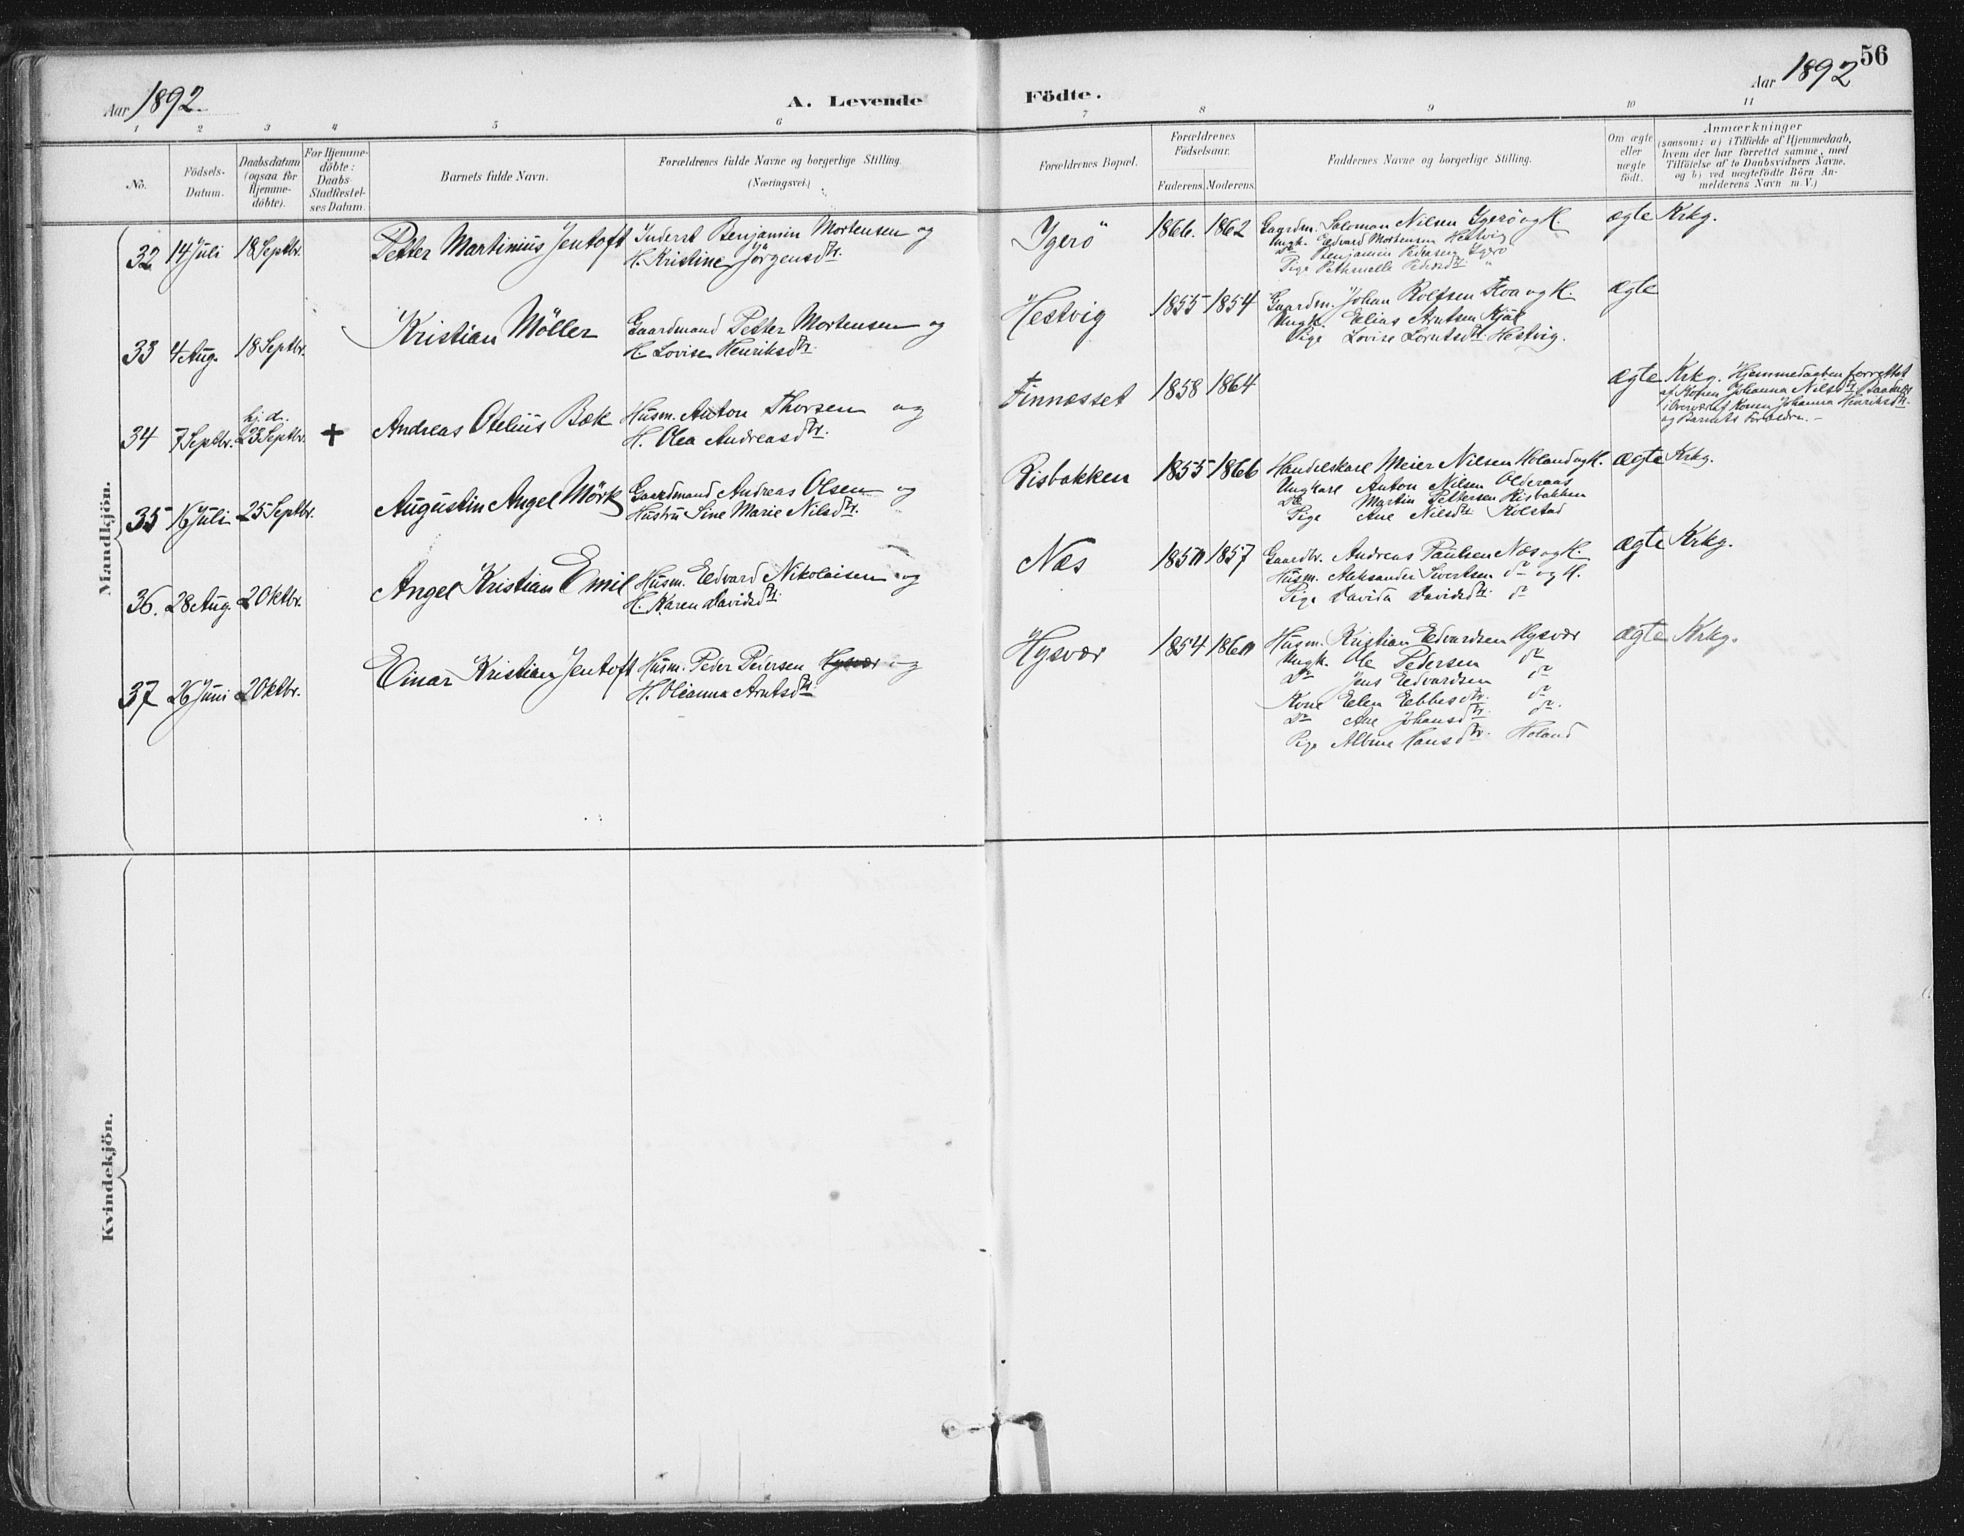 Aar 1892.
A. Levende Födte.
Aar 1892
56
1 2 3 4 5 6 7 8 9 10 11
No.
Födsels-
Datum.
Daabsdatum
(ogsaa for
Hjemme-
döbte).
For Hjemme-
döbte:
Daabs
Stadfæstel-
ses Datum.
Barnets fulde Navn.
Forældrenes fulde Navne og borgerlige Stilling.
(Næringsvei.)
Forældrenes Bopæl.
Forældrenes
Födselsaar.
Faderens. Moderens.
Faddernes Navne og borgerlige Stilling.
Om ægte
eller
uægte
födt.
Anmærkninger
(saasom: a) i Tilfælde af Hjemmedaab,
hvem der har forrettet samme, med
Tilföielse af to Daabsvidners Navne,
og b) ved uægtefödte Börn An-
melderens Navn m. V.)
Mandkjön.
32 14 Juli 18 Septbr. Petter Martinius Jentoft
Inderst Benjamin Mortensen og
H. Kristine Jörgensdtr.
Ygerö 1866. 1862
Gaardm. Salomon Nilsen Ygerö og H.
Ungk. Edvard Mortensen Hestvig
Do Benjamin Pedersen Ygerö
Pige Pethrnelle Pedersdtr. "
ægte Krkg.
33 4 Aug. 18 Septbr. Kristian Möller
Gaardmand Petter Mortensen og
H. Lovise Henriksdtr.
Hestvig 1855 1854
Gaardm. Johan Rolfsen Hoa og H.
Ungk. Elias Arntsen Kjöl
Pige Lovise Lorntsdtr. Hestvig.
ægte
34 7 Septbr. hj. d. 23 Septbr. + Andreas Otelius Bæk
Husm. Anton Thorsen og
H. Olea Andreasdtr.
Finnæsset 1858 1864
ægte Krkg. Hjemmedaaben forrettet
af Konen Johanna Nilsdtr.
i Overvær af Konen Johanna Henriksdtr.
og Barnets Forældre. –
35 16 Juli 25 Septbr. Augustin Angel Mörk
Gaardmand Andreas Olsen og
Hustru Sine Marie Nilsdtr.
Risbakken 1855 1866
Handelskarl Meier Nilsen Holand og H.
Ungkarl Anton Nilsen Olderaas
Do Martin Pettersen Risbakken
Pige Ane Nilsdtr Kolstad
ægte Krkg.
36. 28 Aug. 2 Oktbr. Angel Kristian Emil
Husm. Edvard Nikolaisen og
H. Karen Davidsdtr.
Næs 1857
Gaardbr. Andreas Paulsen Næs og H.
Husm. Aleksander Sivertsen do og H.
Pige Davida Davidsdtr. do
ægte Krkg.
37 26 Juni 2 Oktbr. Einar Kristian Jentoft
Husm. Peder Pedersen Hysvær og
H. Olianna Arntsdtr.
Hysvær 1854
Husm. Kristian Edvardsen Hysvær
Ungk. Ole Pedersen do
Do Jens Edvardsen do
Kone Elen Ebbesdtr. do
Do Ane Johansdtr. do.
Pige Albine Hansdtr. Holand
ægte Krkg.
Kvindekjön.